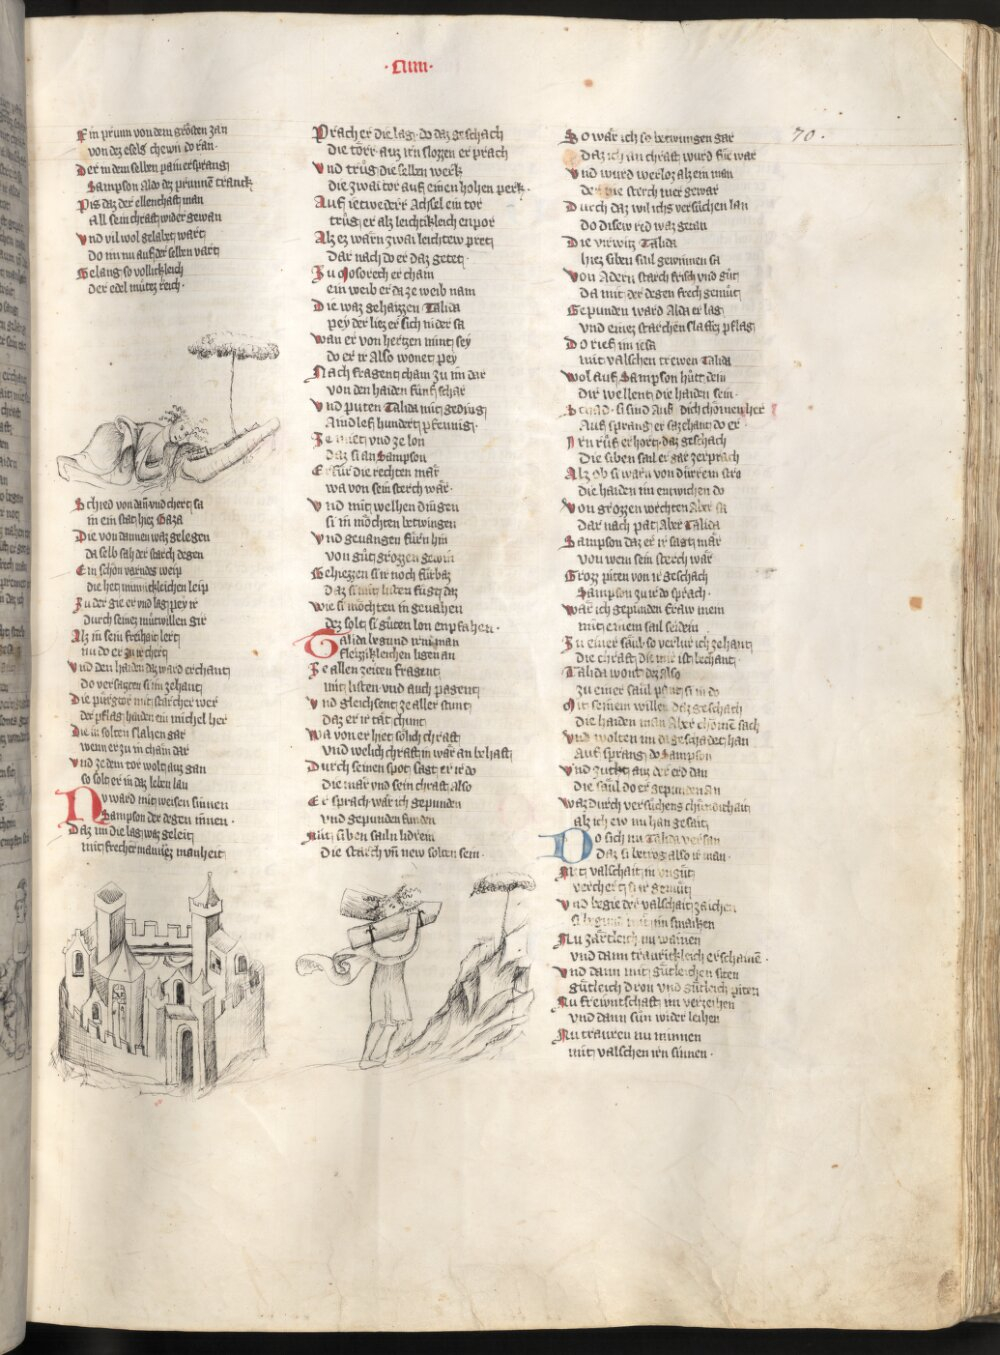 ·LXIIII·
70.
Ein prunn von dem grözten zan
von dez esels chewn do ran·
Der in dem selben painersprang
Sampson Aldo dez prunnē tranck
Piz daz der ellenthaft man
All sein chraft wider gewan
Vnd vil wol gelabet wart
do im nu auf der selben vart
Gelang so vollichleich
der edel mütez reich·
Schied von dan vnd chert sa
in ein stat hiez Gaza
Die von dannen waz gelegen
da selb sah der starch degen
Ein schön varndez weip
die het minnichleichen leip
Zu der gie er vnd lag pey ir
durch seinez mutwillen gir
Alz in sein freihait lert
nu do er zu ir chert
Vnd den haiden daz ward erchant
do versatzten si im zehant
Die purgtor mit starcher wer
der pflag haiden ein michel her
Die in solten slahen gar
wenn er zu in cham dar
Vnd ze dem tor wolt auz gan
so solt er in daz leben lan
Nv ward mit weisen sinnen
Sampson der degen innen·
Daz im die lag waz geleit
mit frecher mannez manheit
Prach er die lag· do daz geschach
die törr auz irn slozzen er prach
Vnd trug die selben werk
die zwai tor auf einen hohen perk·
Auf ietwederr Achsel ein tor
trug er alz leichtikleich enpor
Alz ez wärn zwai leichtew pret
dar nach do er daz getet·
Zu Mosorech er cham
ein weib er da ze weib nam
Die waz gehaizzen Talida
pey der liez er sich nider sa
Wan er von hertzen mint sey
do er ir Also wonet pey
Nach fragent cham zu im dar
von den haiden fünf schar
Vnd puten Talida mit geding
Aindlef hundert pfennig·
Ze miet vnd ze lon
daz si an Sampson
Erfür die rechten mär
wa von sein sterch wär·
Vnd mit welhen dingen
si in möchten betwingen
Vnd geuangen fürn hin
von gut grozzen gewin
Gehiezzen si ir noch fürbaz
daz si mit liden fügt daz
Wie si möchten in geuahen
dez solt si guten lon enpfahen·
Talida begund irn man
fleizikleichen ligen an
Ze allen zeiten fragent
mit listen vnd auch pagent
Vnd gleichsent ze aller stunt
daz er ir tät chunt
Wa von er hiet sölich chraft
vnd welich chraft in wär an behaft
Durch seinen spot sagt er ir do
die mär vnd sein chraft also
Er sprach wär ich gepunden
vnd gepunden funden
Mit siben sailn lidrein
die starch vñ new solten sein·
So wär ich so betwungen gar
daz ich an chraft wurd für war
Vnd wurd werloz alz ein man
der nie sterch mer gewar
Durch daz wil ichs versuchen lan
do disew red waz getan
Die virwitz Talida
hiez siben sail gewinnen sa
Von Adern starch frisch vnd gut
da mit der degen frech gemut
Gepunden ward Alda er lag
vnd einez starchen slaffez pflag
Do rief im iesa
mit valschen trewen Talida
Wol auf Sampson hütt dein
dir wellent die haiden sein·
si sind Auf dich chomen her
Auf sprang er sazehant do er
Irn ruf erhort· daz geschach
Die siben sail er gar zerprach
Alz ob si warn von dürrem stro
die haiden im entwichen do
Von grozzen vorchten Aber sa
Dar nach pat Aber Talida
Sampson daz er ir sagt mär
von wem sein sterch wär
Grozz piten von ir geschach
Sampson zu ir do sprach·
Wär ich gepunden fraw mein
mit einem sail seidein
Zu einer säul· so verlür ich zehant
Die chraft die mir ist bechant·
Talida wont dez Also
zu einer säul pant si in do
Mit seinem willen daz geschach
die haiden man Aber chomē sach
Vnd wolten im da geschadet han
Auf sprang do Sampson
Vnd zucht auz der erd dan
die saul do er gepunden an
Waz durch versuchens chündichait
alz ich ew nu han gesait
Do sich nu Talida versan
Daz si betrog also ir man·
Mit valschait in vngüt
verchert si ir gemüt
Vnd begie der valschait zaichen
Nu zärtleich im wainen
vnd dann traurickleich erscheinē·
Vnd dann mit gutleichen siten
gütleich dron vnd gütleich piten
Nu frewntschaft im verzeihen
vnd dann sün wider leihen
Nu trauren nu minnen
mit valschen irn sinnen·